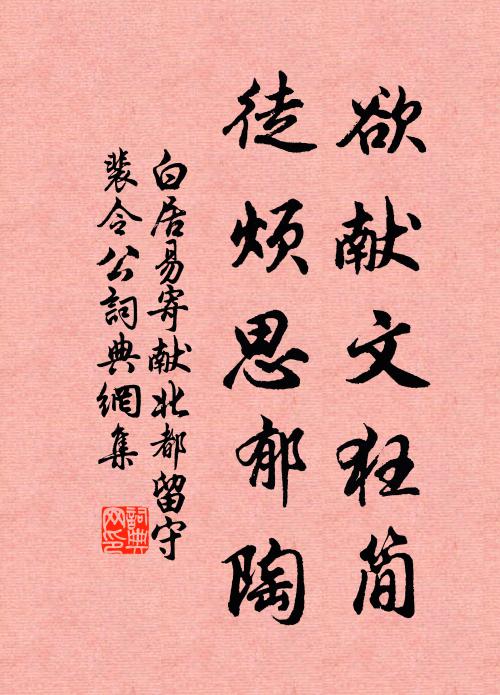 欲献文狂简
徒烦思郁陶
白居易寄献北都留守
裴令公詞典網集
詞典
网印